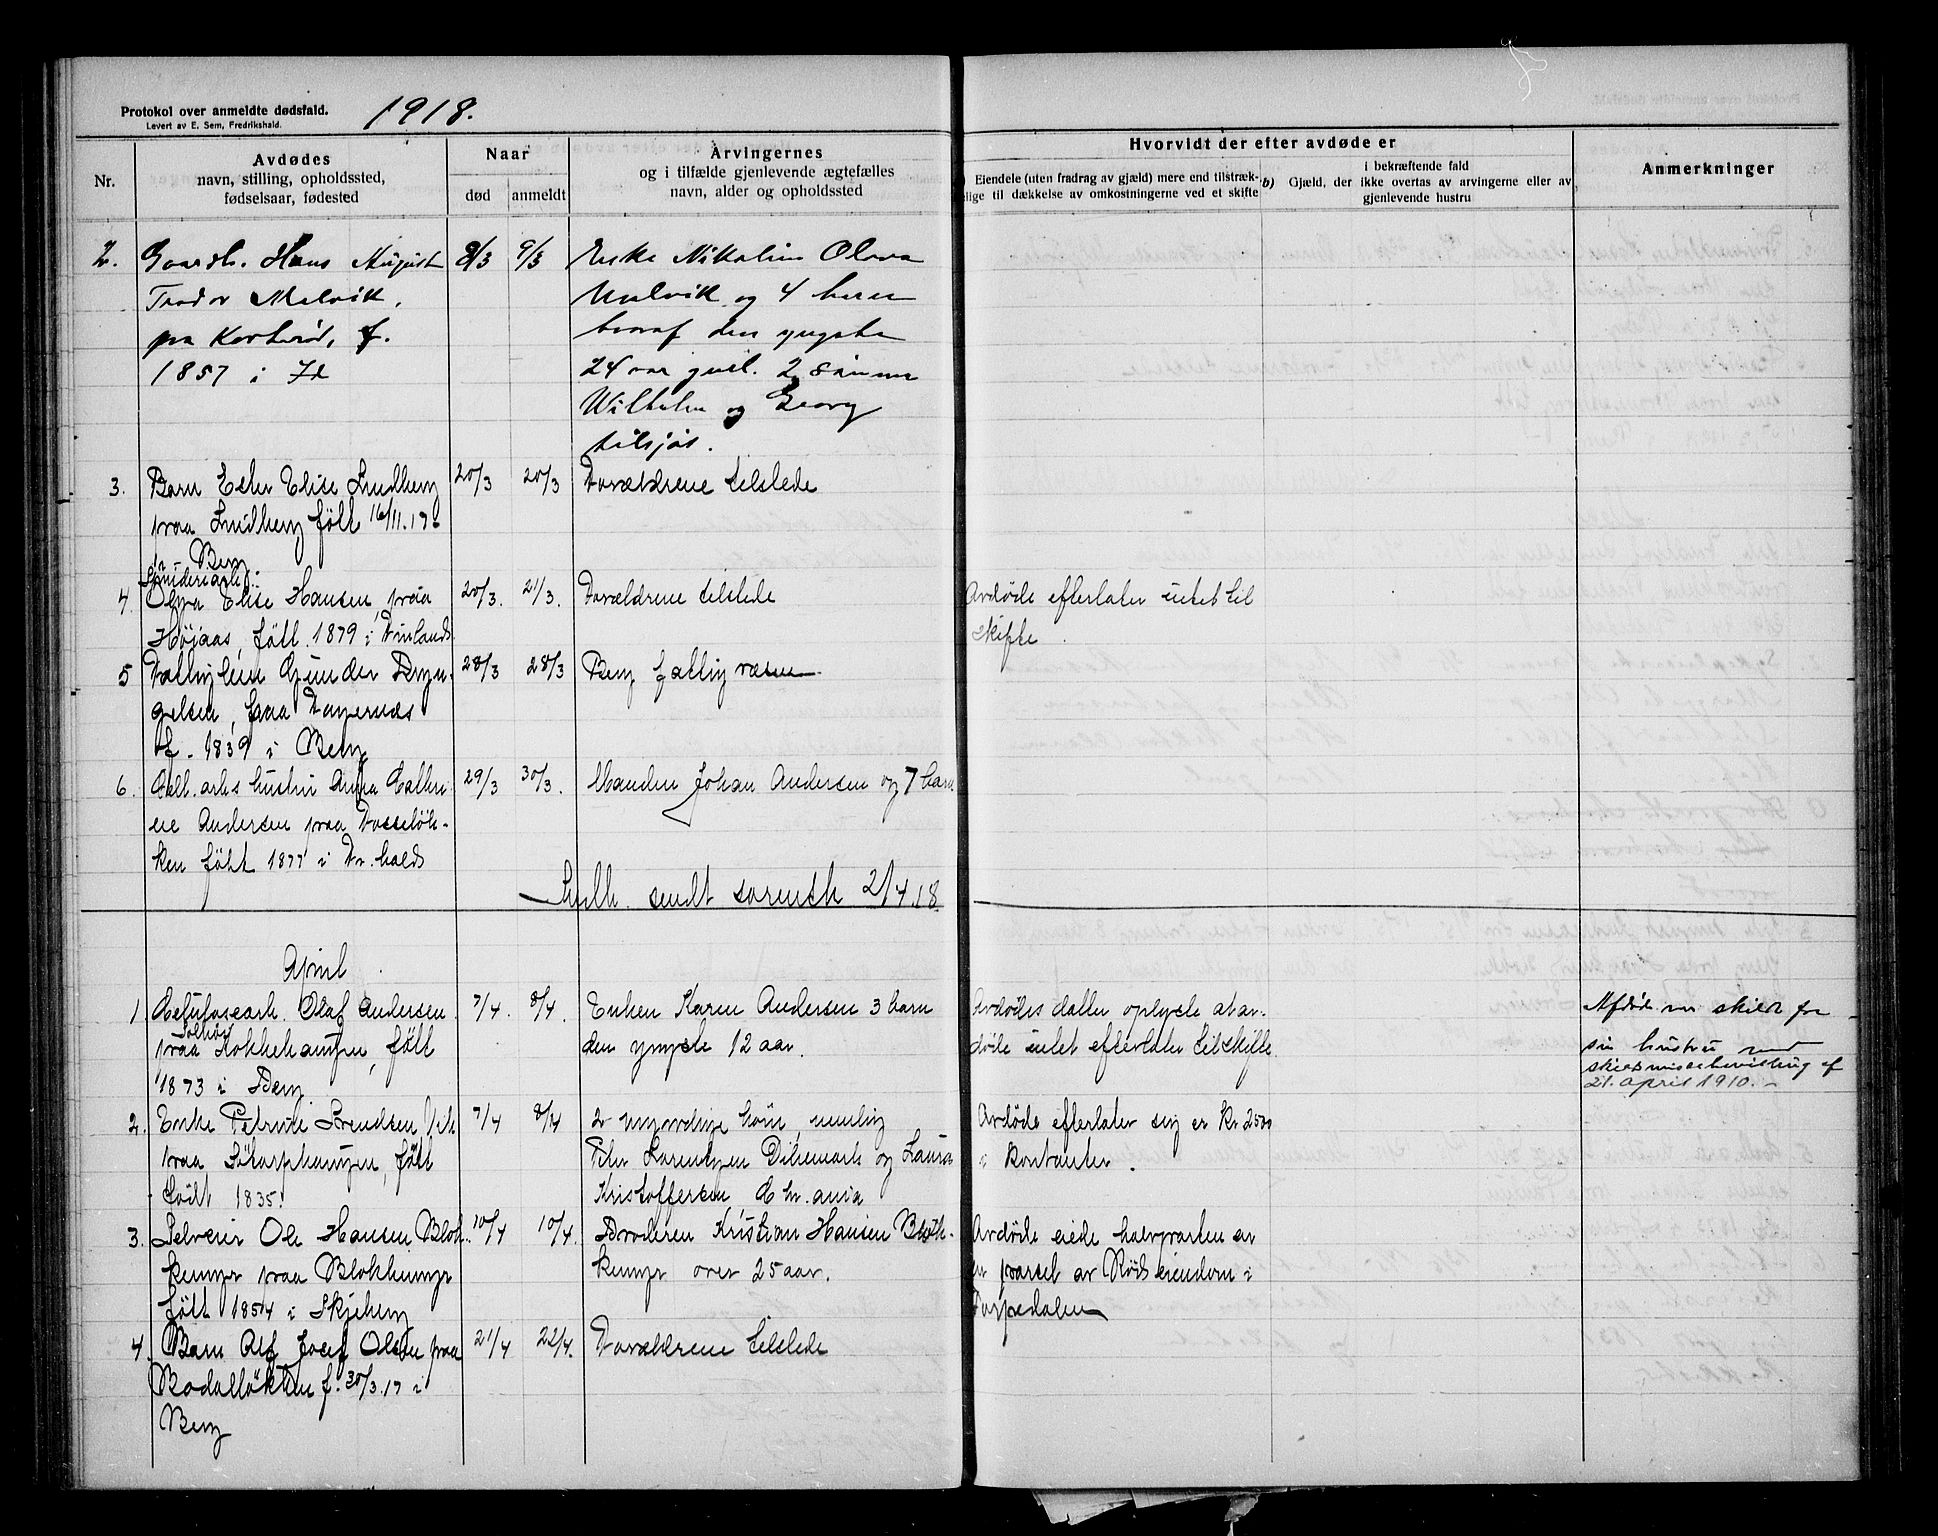 Protokol over anmeldte dødsfald.
Levert av E. Sem, Fredrikshald.
1918.
Nr.
Avdødes
navn, stilling, opholdssted,
fødselsaar, fødested
Naar
død
anmeldt
Arvingernes
og i tilfælde gjenlevende ægtefælles
navn, alder og opholdssted
Hvorvidt der efter avdøde er
Eiendele (uten fradrag av gjæld) mere end tilstræk-
lige til dækkelse av omkostningerne ved et skifte
b) Gjæld, der
i bekræftende fald
ikke overtas av arvingerne eller av
gjenlevende hustru
Anmerkninger
2.
Gaardb. Hans August
Melvik,
pa f.
1857 i Id
8/3
9/3
Enke Nikoline Olava
Melvik og 4 barn
hvoraf den yngste
24 aar gml. 2 sønner
Wilhelm og Georg
tilsjøs.
3.
Barn Ester Elise Lindberg
paa Lindberg født 16/11.17
i Berg
20/3
20/3
Forældrene tilstede
4
Olga Elise Hansen, paa
Høiaas, født 1879 i
20/3.
21/3.
Forældrene tilstede
Avdøde efterlater intet til
skifte.
5
Fattiglem Gunder
gelsen, paa
f. 1839 i Berg
28/3
28/3
Berg fattigvæsen
6.
Cell. arb. hustru Anna Cathri-
ne Andersen paa Fosseløk-
ken født 1877 i Fr.hald
29/3
30/3.
Manden Johan Andersen og 7 barn
Indb. sendt sorensk 2/4.18.
April
1.
Celulosearb. Olaf Andersen
Solhøi
paa Kokkehaugen, født
1873 i Berg
7/4.
8/4.
Enken Karen Andersen 3 barn
den yngste 12 aar.
Avdødes datter oplyste at av-
døde intet efterlater til skifte.
Afdøde var skildt fra
sin hustru ved
skilsmissebevilling af
21. april 1910.
2.
Enke Petrine Svendsen
paa født
1835.
7/4
8/4
2 myndige børn, nemlig
Peter Lorentzen og Laura
Kristoffersen Chr.ania
Avdøde efterlater sig er Kr 2500
i kontanter.
3.
Selveier Ole Hansen Blok-
kemyr paa Blokkemyr
født 1854 i Skjeberg
10/4
10/4.
Broderen Kristian Hansen Blok-
kemyr over 25 aar.
Avdøde eiede halvparten av
en parsel av Rød eiendom i
Torpedalen
4.
Barn Alf Josef Olsen paa
Bødalløkken f. 30/3.17 i
Berg
21/4
22/4.
Forældrene tilstede